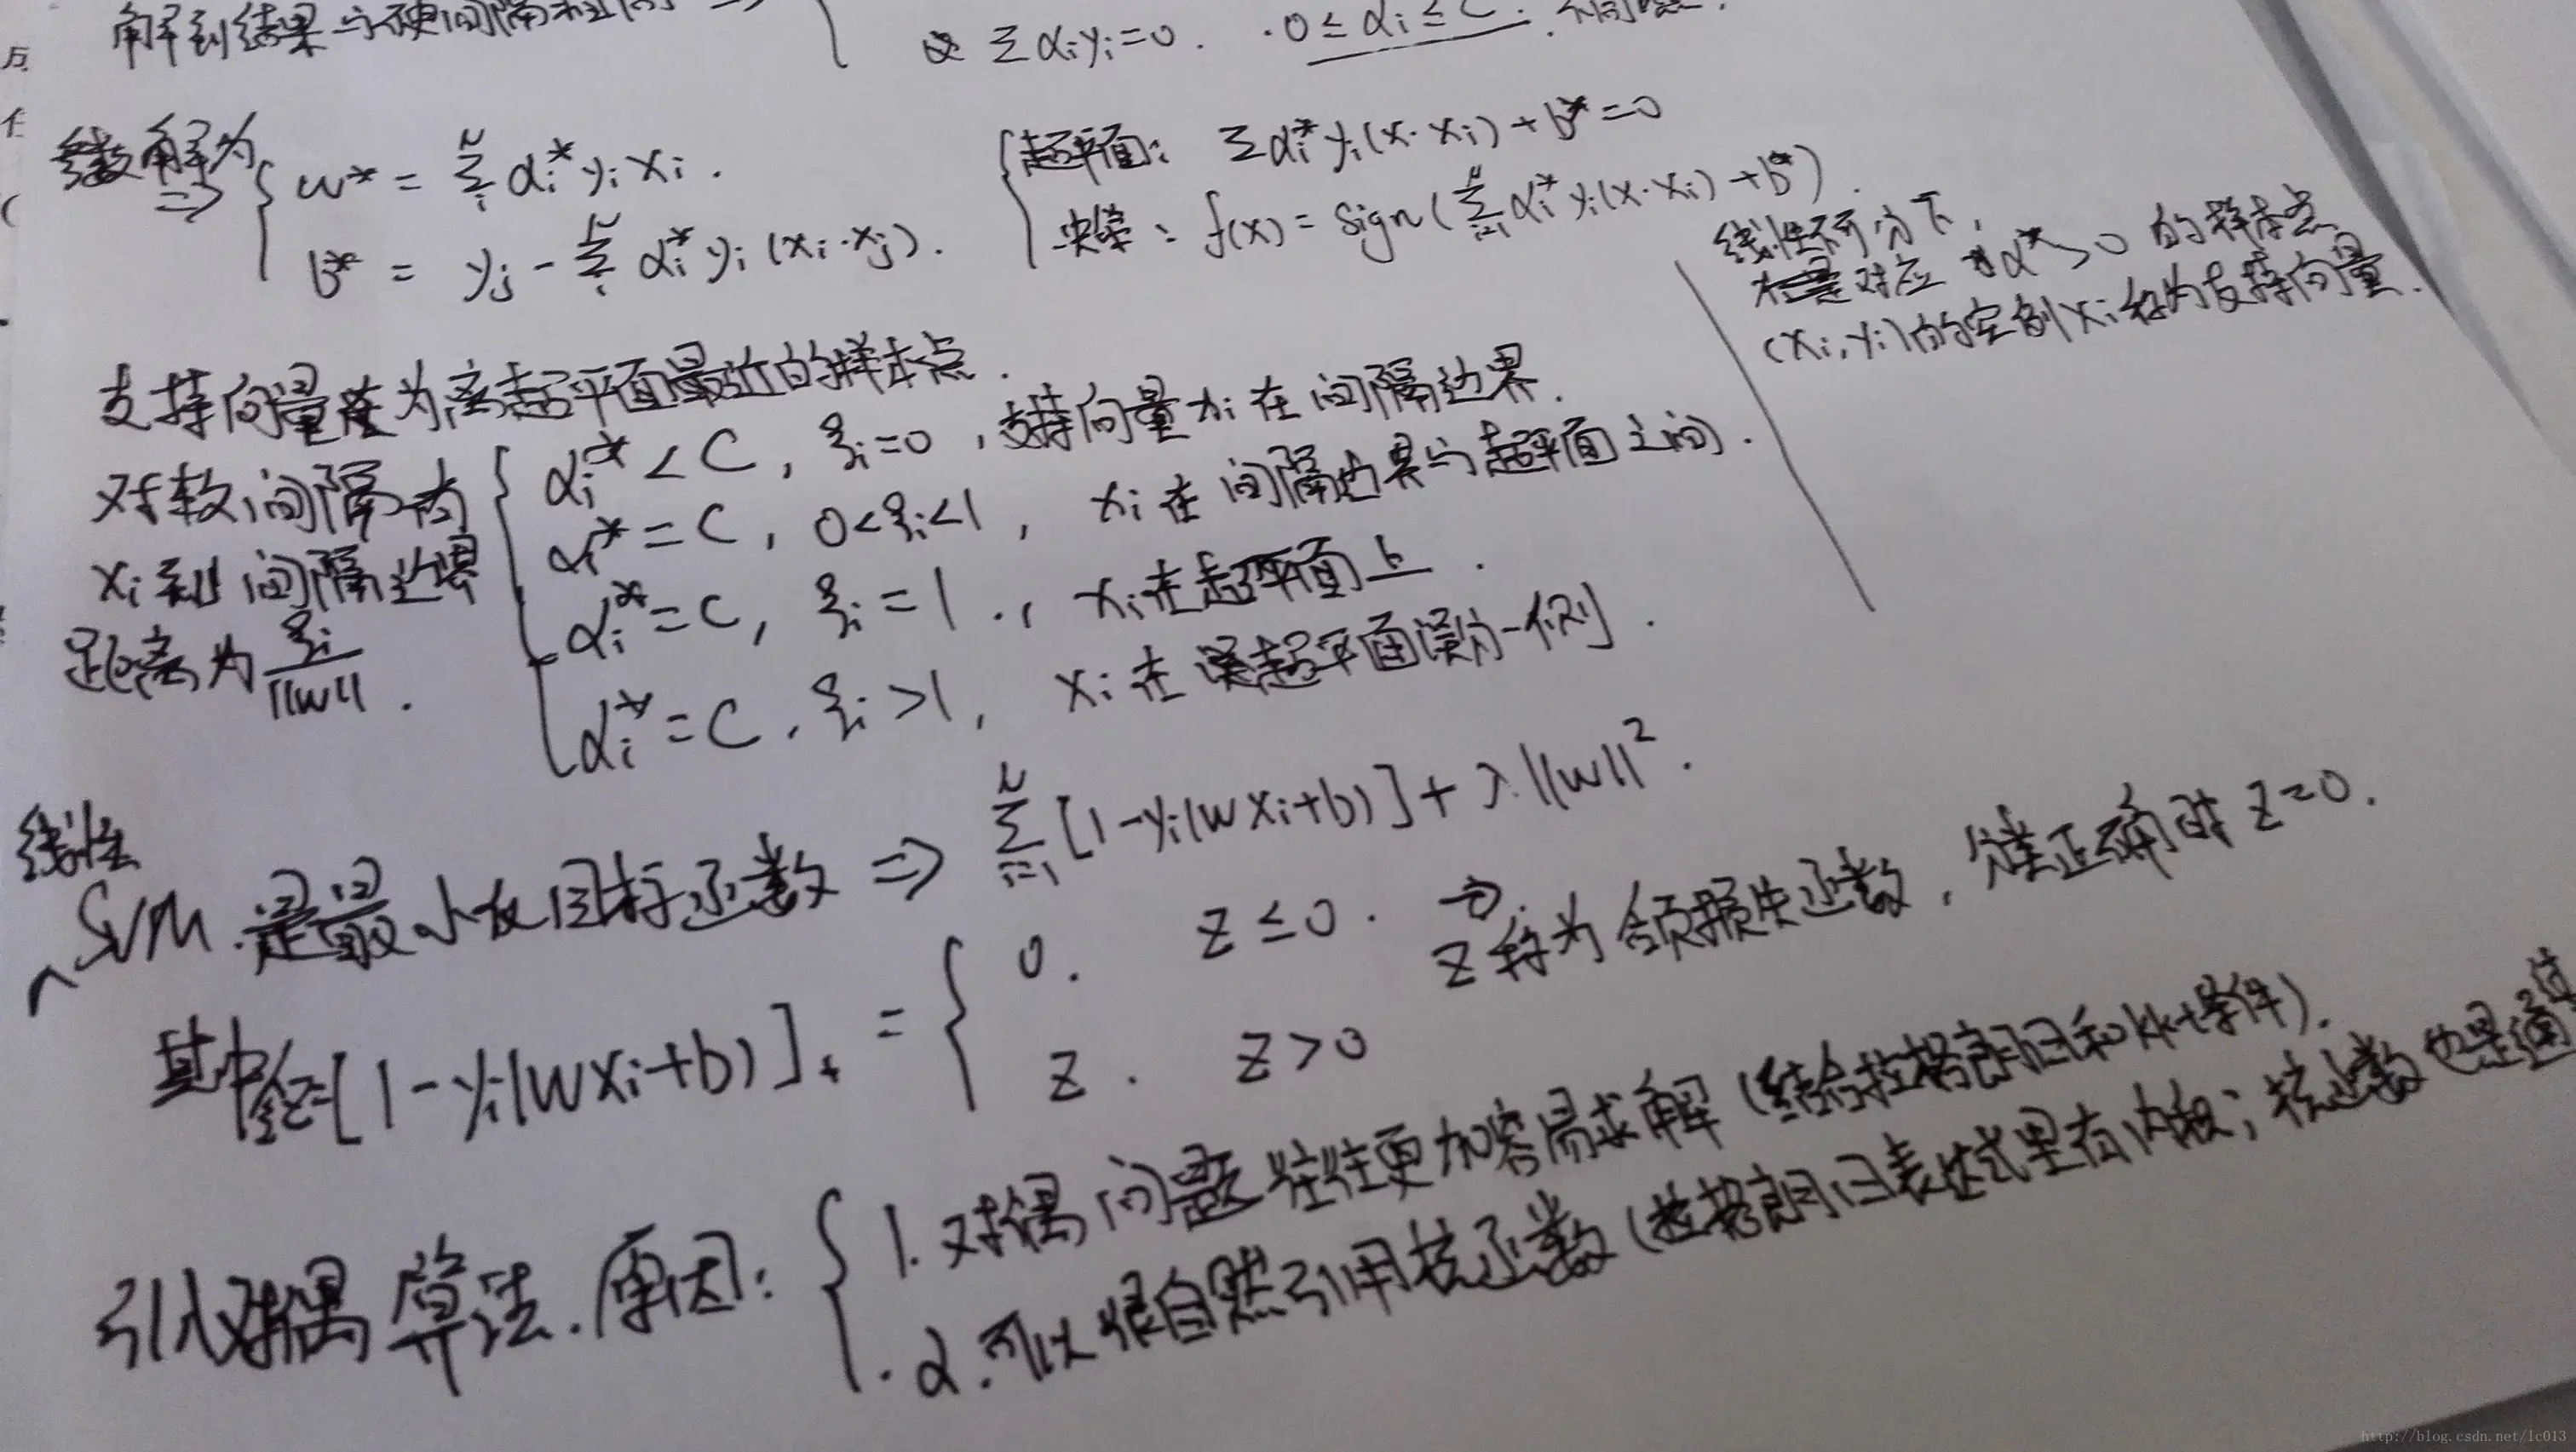 解到结果与硬间隔
{ 且 Σαiyi=0. ·0≤αi≤C.
参数解为
=> { w* = Σ_i^N αi* yi xi.
b* = yj - Σ_i^N αi* yi (xi·xj).
{ 超平面: Σαi* yi(x·xi) + b* = 0
决策: f(x) = sign(Σ_{i=1}^N αi* yi(x·xi) + b*).
线性不可分下,
对应 α*>0 的样本点
(xi,yi)的实例xi称为支持向量.
支持向量为离超平面最近的样本点.
对软间隔为 { αi* < C, ξi=0, 支持向量xi在间隔边界.
xi到间隔边界 αi* = C, 0<ξi<1, xi在间隔边界与超平面之间.
距离为 ξi/||w||. αi* = C, ξi=1., xi在超平面上.
αi* = C, ξi>1, xi在超平面误分一侧.
线性
SVM.是最小化目标函数 => Σ_{i=1}^N [1-yi(wxi+b)] + λ||w||².
其中令z=[1-yi(wxi+b)]₊ = { 0. z≤0. →.
z. z>0
z称为合页损失函数, 分类正确时 z=0.
引入对偶算法.原因: { 1.对偶问题往往更加容易求解(结合拉格朗日和kkt条件).
2.可以很自然引用核函数(拉格朗日表达式里有内积; 核函数也是通
http://blog.csdn.net/lc013